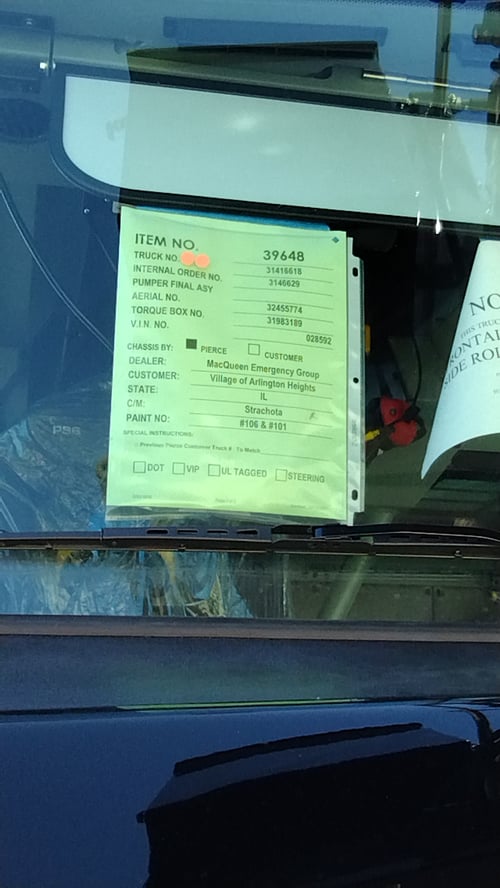 ITEM NO. 39648
TRUCK NO. 31416618
INTERNAL ORDER NO. 3146629
PUMPER FINAL ASY
AERIAL NO. 32455774
TORQUE BOX NO. 31983189
V.I.N. NO. 028592
CHASSIS BY: PIERCE CUSTOMER
DEALER: MacQueen Emergency Group
CUSTOMER: Village of Arlington Heights
STATE: IL
C/M: Strachota
PAINT NO: #106 & #101
SPECIAL INSTRUCTIONS:
Previous Pierce Customer Truck # To Match
DOT VIP UL TAGGED STEERING
NO
THIS TRUC
ONTAI
IDE ROL